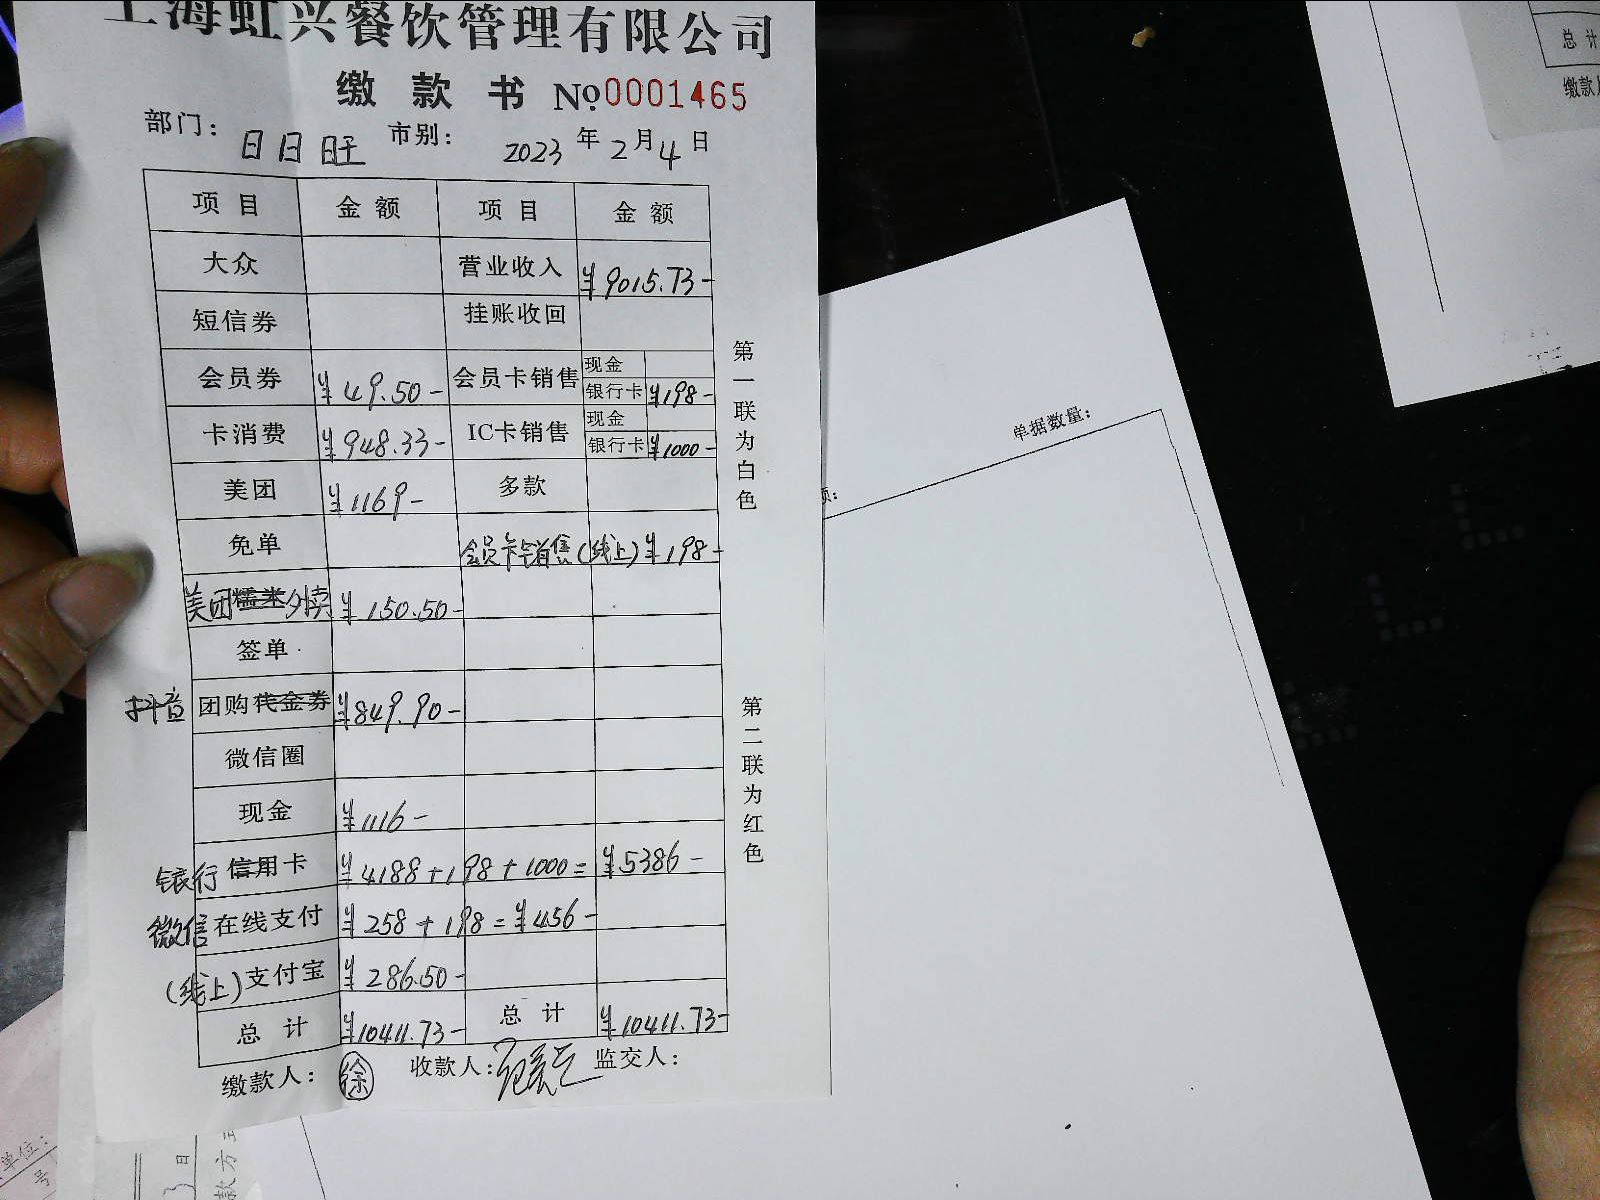 上海虹兴餐饮管理有限公司
缴款书 No 0001465
部门： 日日旺 市别： 2023 年 2 月 4 日
项目 金额 项目 金额
大众 营业收入 ¥9015.73-
短信券 挂账收回
会员券 ¥49.50- 会员卡销售 现金
银行卡 ¥198-
卡消费 ¥948.33- IC卡销售 现金
银行卡 ¥1000-
美团 ¥1169- 多款
免单 会员卡销售(线上) ¥198-
美团糯米外卖 ¥150.50-
签单
抖音 团购代金券 ¥849.90-
微信圈
现金 ¥1116-
银行 信用卡 ¥4188+198+1000= ¥5386-
微信 在线支付 ¥258+198=¥456-
(线上) 支付宝 ¥286.50-
总计 ¥10411.73- 总计 ¥10411.73-
缴款人： 徐 收款人： 监交人：
第一联为白色
第二联为红色
单据数量：
总计
缴款人
单位：
号
3日
款方